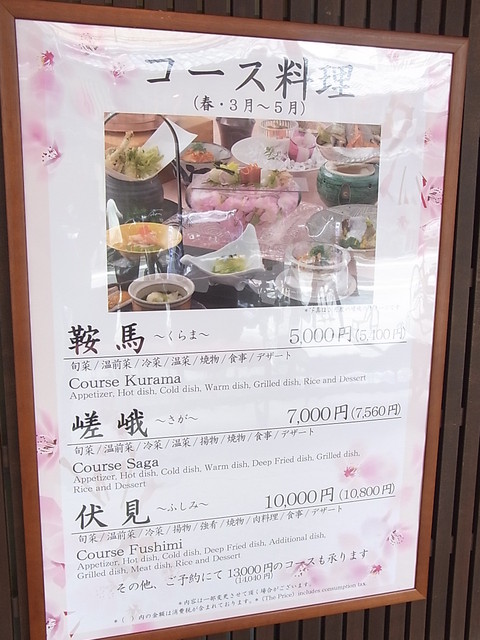 コース料理
(春・3月～5月)
鞍馬 ～くらま～ 5,000円(5,100円)
旬菜/温前菜/冷菜/温菜/焼物/食事/デザート
Course Kurama
Appetizer, Hot dish, Cold dish, Warm dish, Grilled dish, Rice and Dessert
嵯峨 ～さが～ 7,000円(7,560円)
旬菜/温前菜/冷菜/温菜/揚物/焼物/食事/デザート
Course Saga
Appetizer, Hot dish, Cold dish, Warm dish, Deep Fried dish, Grilled dish,
Rice and Dessert
伏見 ～ふしみ～ 10,000円(10,800円)
旬菜/温前菜/冷菜/揚物/強肴/焼物/肉料理/食事/デザート
Course Fushimi
Appetizer, Hot dish, Cold dish, Deep Fried dish, Additional dish,
Grilled dish, Meat dish, Rice and Dessert
その他、ご予約にて13000円のコースも承ります
(14,040円)
*内容は一部変更させて頂く場合がございます。
*( )内の金額は消費税が含まれております。*(The Price) includes consumption tax.